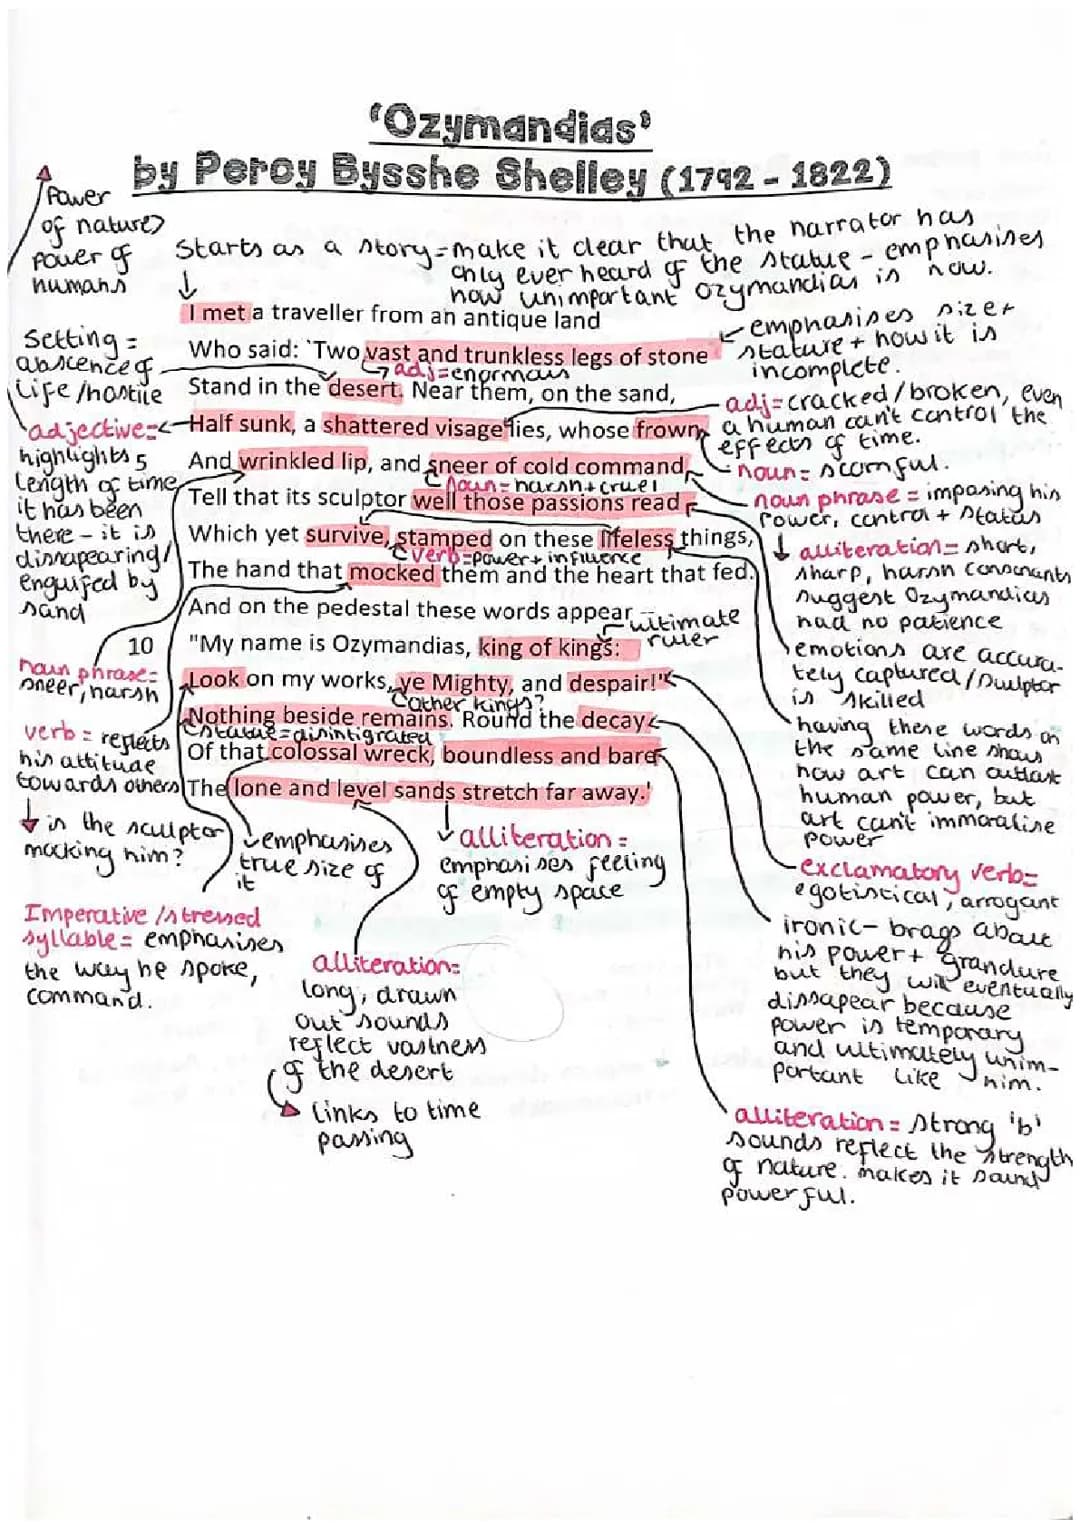 ‘Ozymandias’
by Percy Bysshe Shelley (1792 - 1822)
Power
of nature>
power of
humans
Starts as a story = make it clear that the narrator has
only ever heard of the statue - emphasises
how unimportant Ozymandias is now.
I met a traveller from an antique land
emphasises size +
stature + how it is
incomplete.
Setting =
abscence of
life/hostile
Who said: ‘Two vast and trunkless legs of stone
adj=enormous
Stand in the desert. Near them, on the sand,
adj=cracked/broken, even
a human can't control the
effects of time.
adjective=
highlights
length of time
it has been
there - it is
dissapearing/
engulfed by
sand
Half sunk, a shattered visage lies, whose frown,
noun= scornful.
And wrinkled lip, and sneer of cold command,
noun= harsh+cruel
noun phrase = imposing his
power, control + status
Tell that its sculptor well those passions read
Which yet survive, stamped on these lifeless things,
verb=power+influence
alliteration= short,
sharp, harsh consonants
suggest Ozymandias
had no patience
The hand that mocked them and the heart that fed.
And on the pedestal these words appear
ultimate
ruler
10 "My name is Ozymandias, king of kings:
emotions are accura-
tely captured/sculptor
is skilled
noun phrase=
sneer, harsh
Look on my works, ye Mighty, and despair!"
other kings?
Nothing beside remains. Round the decay
statue=disintigrated
having these words on
the same line shows
how art can outlast
human power, but
art can't immoralise
power
verb = reflects
his attitude
towards others
Of that colossal wreck, boundless and bare
The lone and level sands stretch far away.’
is the sculptor
mocking him?
emphasises
true size of
it
alliteration =
emphasises feeling
of empty space
exclamatory verb=
egotistical, arrogant
Imperative/stressed
syllable= emphasises
the way he spoke,
command.
alliteration=
long, drawn
out sounds
reflect vastness
of the desert
links to time
passing
ironic- brags about
his power+ grandure
but they will eventually
dissapear because
power is temporary
and ultimately unim-
portant like him.
alliteration = strong 'b'
sounds reflect the strength
of nature. makes it sound
powerful.